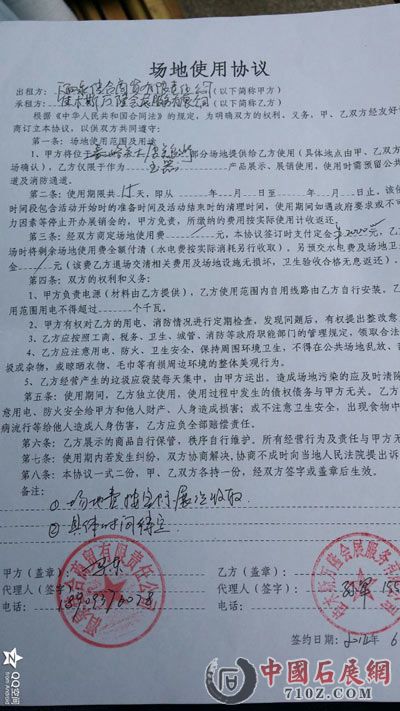 场地使用协议
出租方：（以下简称甲方）
承租方：（以下简称乙方）
根据《中华人民共和国合同法》的规定，为明确双方的权利、义务，甲、乙双方经友好
商订立本协议，以供双方共同遵守：
第一条：场地使用范围及用途
1、甲方将位于部分场地提供给乙方使用（具体地点由甲、乙双方
场确认），乙方仅限于作为产品展示、展销使用，使用时需预留公共
道及消防通道。
第二条：使用期限共天，即从年 月 日至 年 月 日止，该使
时间段包含活动开始时的准备时间及活动结束时的清理时间，使用期间如遇政府要求或不可
力因素等停止开办展销会的，甲方免责，所缴纳的费用按实际使用计收返还。
第三条：经双方商定场地使用费元，本协议签订时支付定金元，
场时将剩余场地使用费全额付清（水电费按实际消耗另行收取）。另预交水电费及场地卫
金元（该费乙方退场交清相关费用及场地设施无损坏，卫生验收合格无息返还）。
第四条：双方的权利和义务：
1、甲方负责电源（材料由乙方提供），乙方使用范围内自用线路由乙方自行安装，乙
用范围用电不得超过个千瓦。
2、甲方有权对乙方的用电、消防情况进行定期检查，发现问题后，有权提出整改意
3、乙方应按照工商，税务、卫生、城管，消防等政府职能部门的管理规定，领取合法
4、乙方应注意用电、防火、卫生安全，保持周围环境卫生，不得在公共场地乱放、
圾或杂物，或晾晒衣物、毛巾等有损周边环境的整体美观行为。
5、乙方经营产生的垃圾应袋装每天集中，由甲方运出，造成场地污染的应及时清除
第五条：使用期间，乙方独立使用，使用过程中发生的债权债务与甲方无关。乙方
意用电、防火安全给甲方和他人财产、人身造成损害；或不注意卫生安全，出现食物中
病流行等给他人造成人身伤害，乙方应负全部赔偿责任。
第六条：乙方展示的商品自行保管，秩序自行维护，所有经营行为及责任与甲方无
第七条：使用期内若发生纠纷，双方协商解决，协商不成时向当地人民法院提出诉
第八条：本协议一式二份，甲、乙双方各持一份，经双方签字或盖章后生效。
备注：
②具体时间待定
甲方（盖章）： 乙方（盖章）：
代理人（签字） 代理人（签字）：
电话： 电话：
签约日期：
QQ空间
中國石展網
710Z.COM